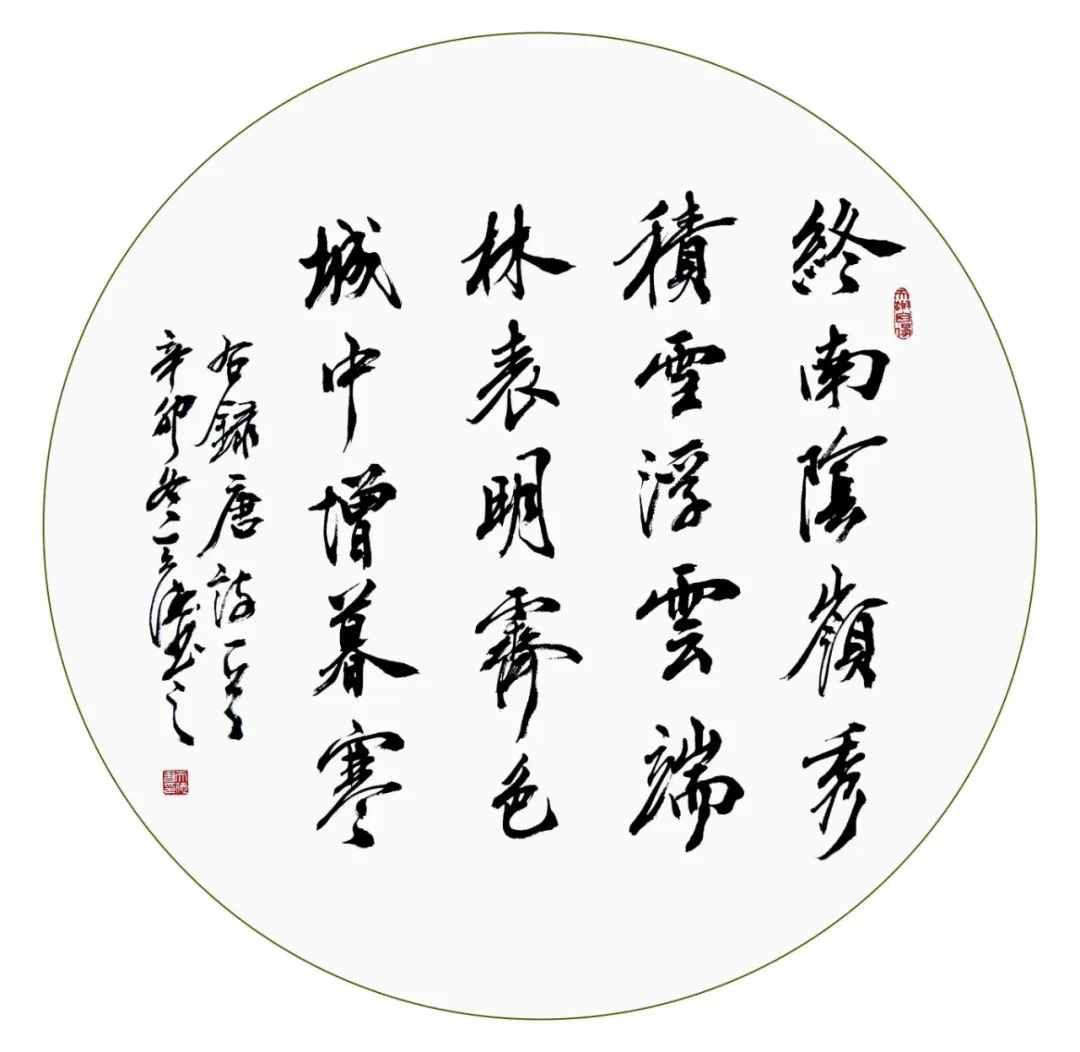 終南陰嶺秀
積雪浮雲端
林表明霽色
城中增暮寒
右錄唐詩一首
辛卯冬天德書之